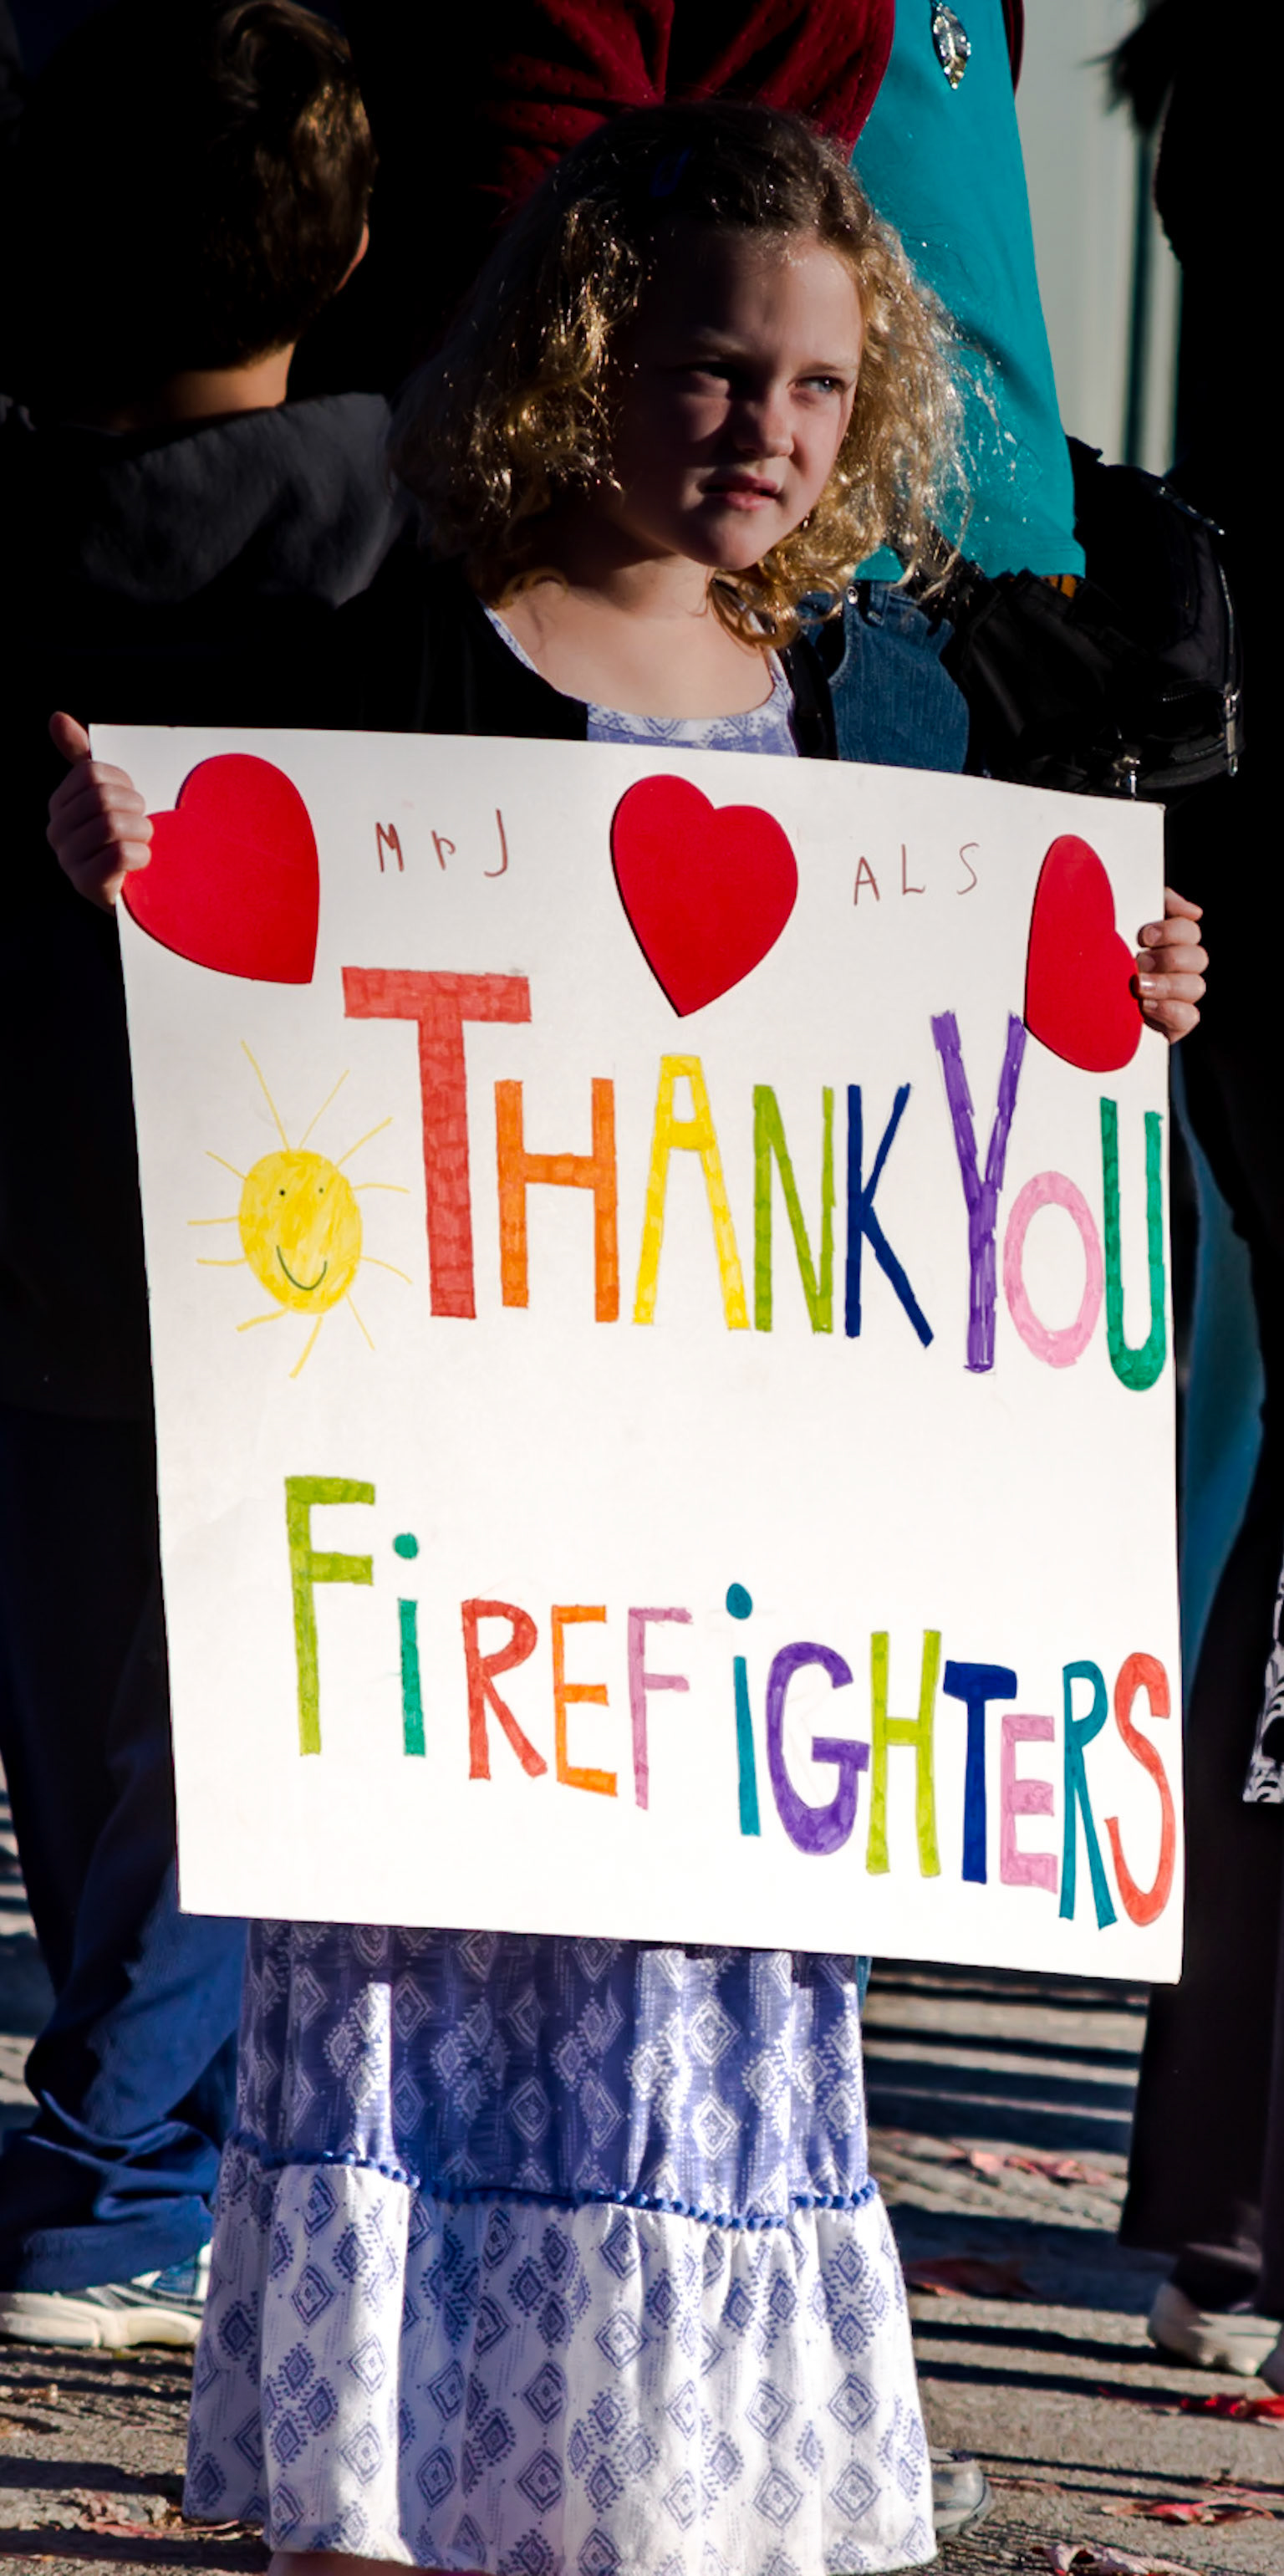 MrJ ALS
THANK YOU
FiREFiGHTERS